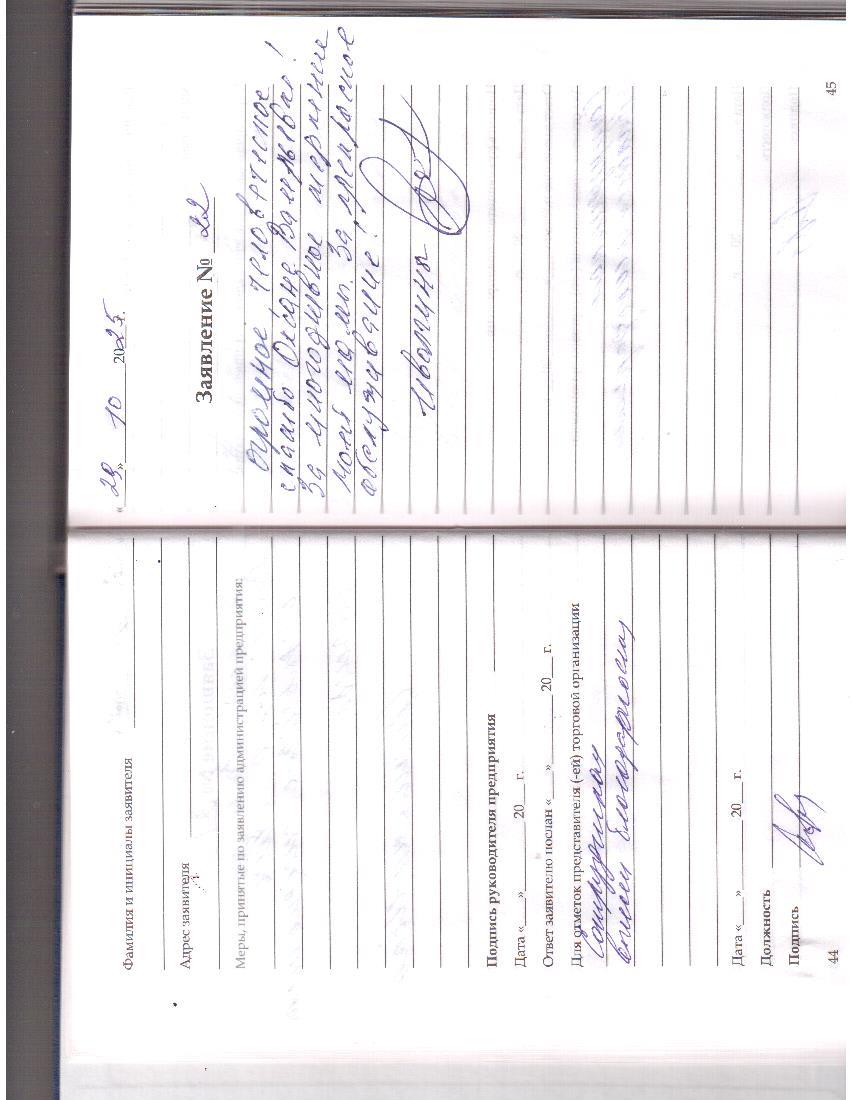 Фамилия и инициалы заявителя
Адрес заявителя
Меры, принятые по заявлению администрацией предприятия:
Подпись руководителя предприятия
Дата «___» ______ 20___ г.
Ответ заявителю послан «___» ______ 20___ г.
Для отметок представителя (-ей) торговой организации
Сотруднику
вынесен благодарность
Дата «___» ______ 20___ г.
Должность
Подпись
44
«29» 10 2025 г.
Заявление № 22
Огромное, человеческое
спасибо Оксане Валерьевне!
За многодневное терпение
моей мамы. За прекрасное
обслуживание!
45